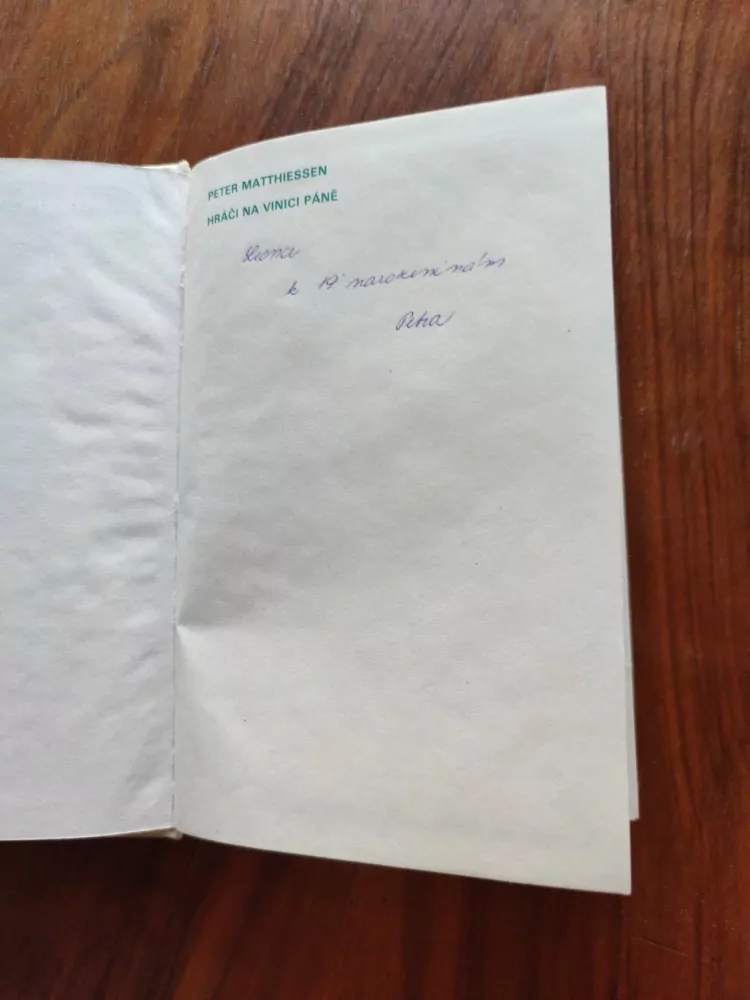 PETER MATTHIESSEN
HRÁČI NA VINICI PÁNĚ
k 19. narozeninám
Petra